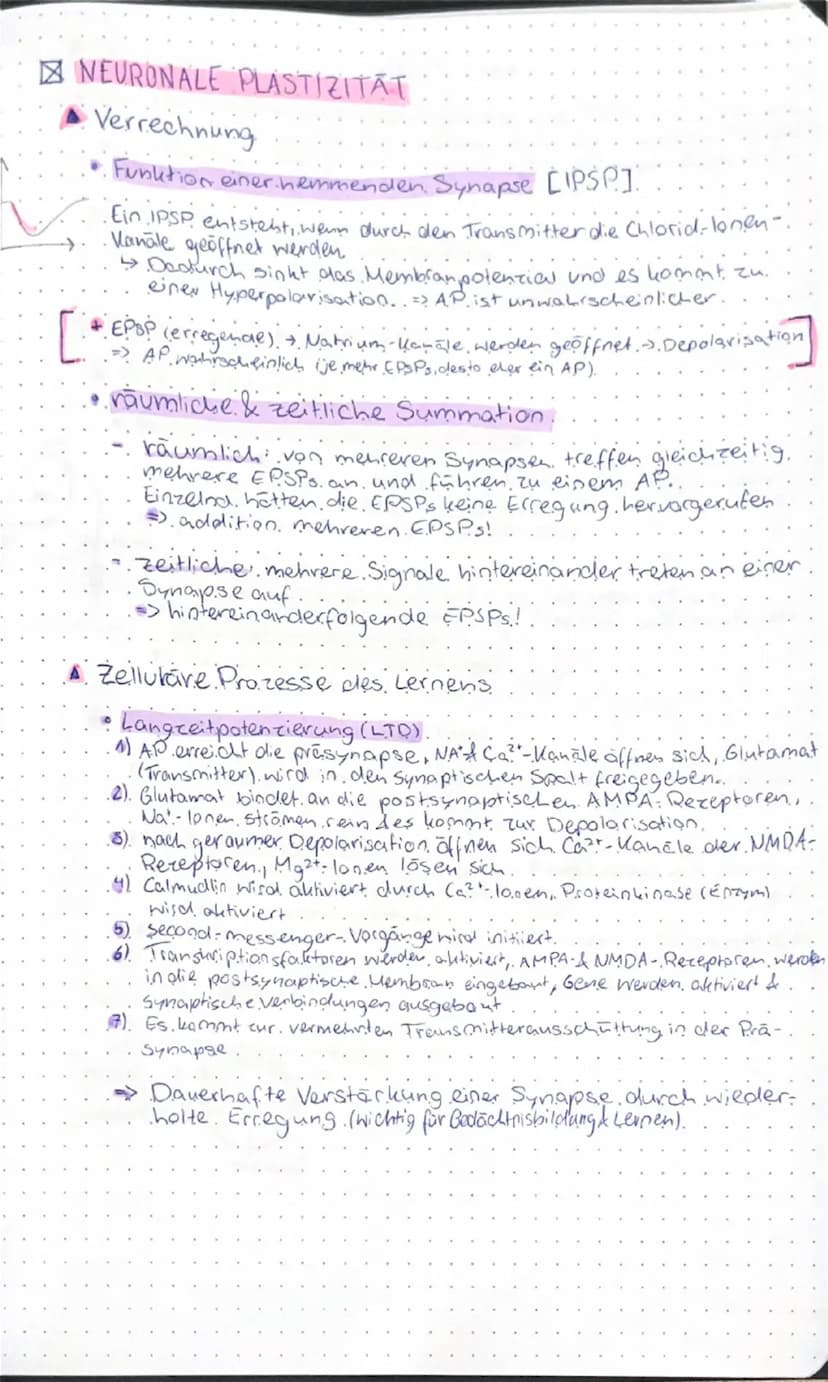 NEURONALE PLASTIZITÄT
Verrechnung
• Funktion einer hemmenden Synapse [IPSP]
Ein IPSP entsteht, wenn durch den Transmitter die Chlorid-Ionen-
Kanäle geöffnet werden
↳ Dadurch sinkt das Membranpotenzial und es kommt zu
einer Hyperpolarisation. => AP ist unwahrscheinlicher.
[+ EPSP (erregende) → Natrium-Kanäle werden geöffnet → Depolarisation]
=> AP wahrscheinlich (je mehr EPSPs, desto eher ein AP)
• räumliche & zeitliche Summation
- räumlich: von mehreren Synapsen treffen gleichzeitig
mehrere EPSPs an und führen zu einem AP.
Einzelnd hätten die EPSPs keine Erregung hervorgerufen
=> addition mehreren EPSPs!
- zeitliche: mehrere Signale hintereinander treten an einer
Synapse auf
=> hintereinanderfolgende EPSPs!
Zelluläre Prozesse des Lernens
• Langzeitpotenzierung (LTD)
1) AP erreicht die präsynapse, NA+ & Ca2+-Kanäle öffnen sich, Glutamat
(Transmitter) wird in den synaptischen Spalt freigegeben.
2) Glutamat bindet an die postsynaptischen AMPA-Rezeptoren,
Na+-Ionen strömen rein des kommt zur Depolarisation.
3) nach geraumer Depolarisation öffnen sich Ca2+-Kanäle der NMDA-
Rezeptoren, Mg2+-Ionen lösen sich
4) Calmudlin wird aktiviert durch Ca2+-Ionen, Proteinkinase (Enzym)
wird aktiviert
5) second-messenger-Vorgänge wird initiiert.
6) Transkriptionsfaktoren werden aktiviert, AMPA-& NMDA-Rezeptoren werden
in die postsynaptische Membran eingebaut, Gene werden aktiviert &
synaptische Verbindungen ausgebaut
7) Es kommt zur vermehrten Transmitterausschüttung in der Prä-
synapse
=> Dauerhafte Verstärkung einer Synapse durch wieder-
holte Erregung (wichtig für Gedächtnisbildung & Lernen).